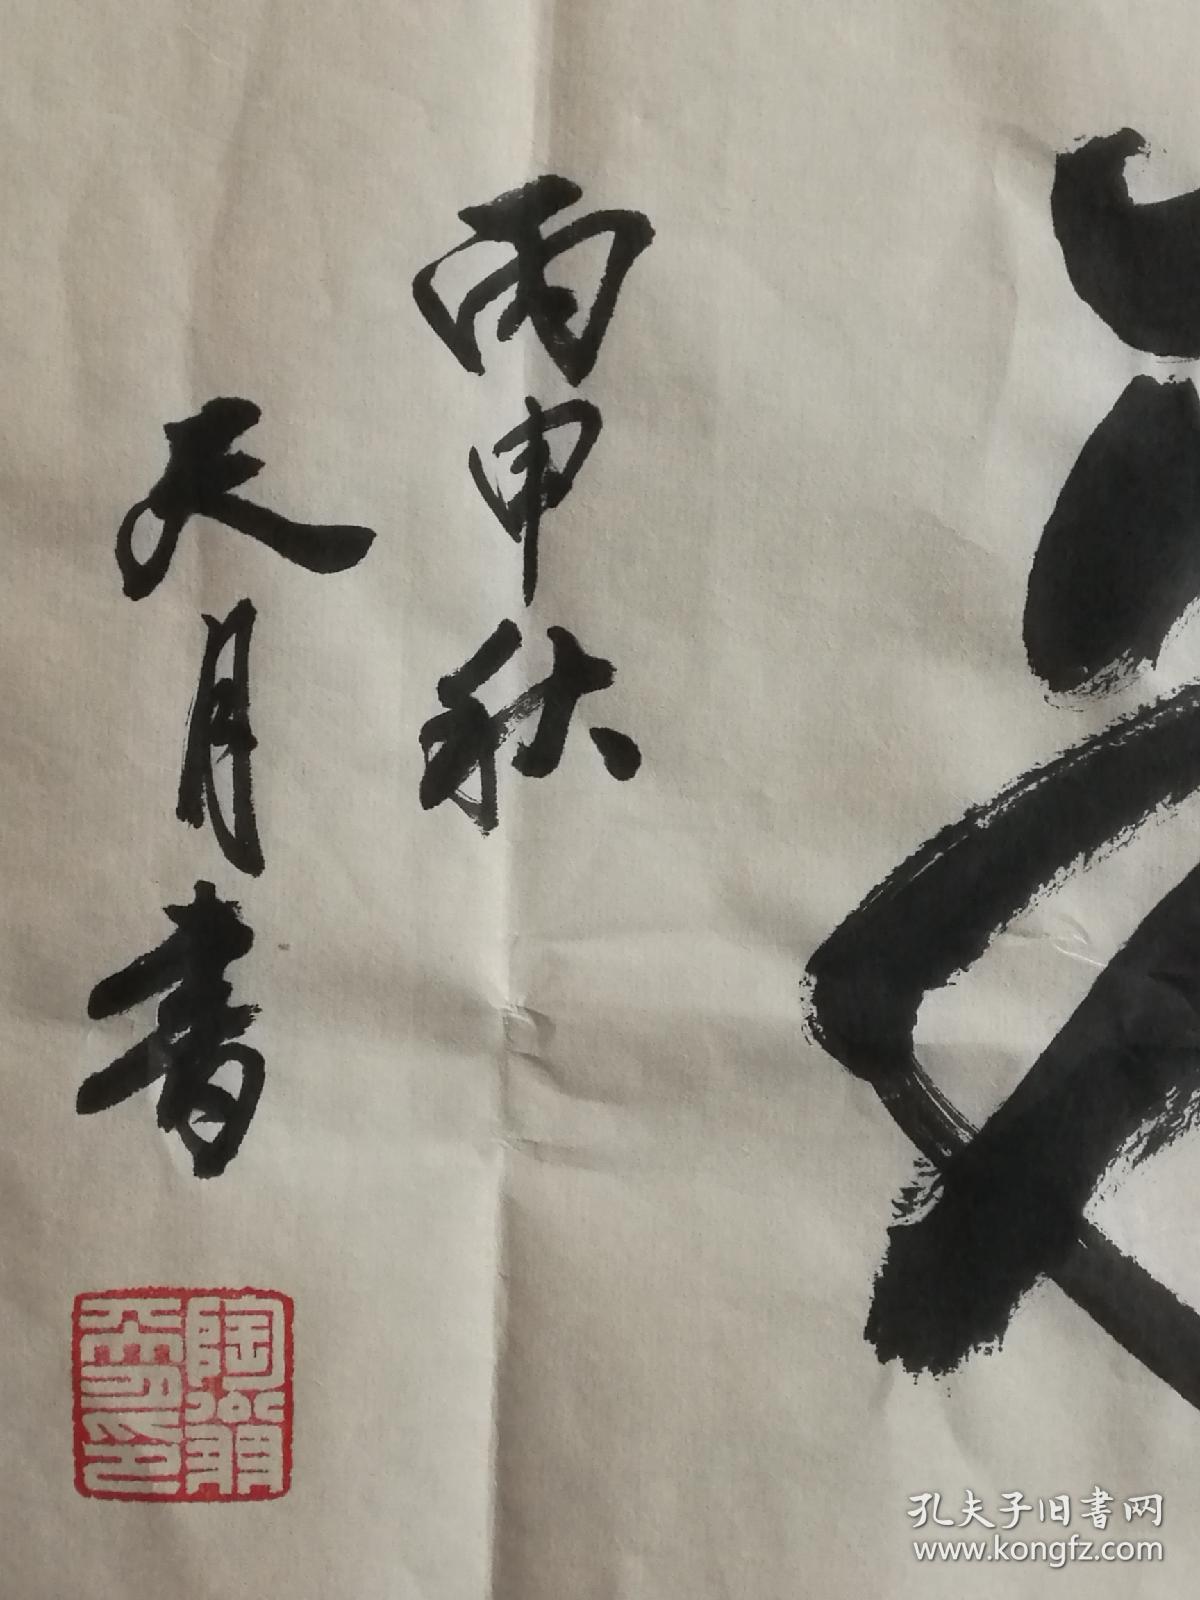 丙申秋
天月書
孔夫子旧書网
www.kongfz.com